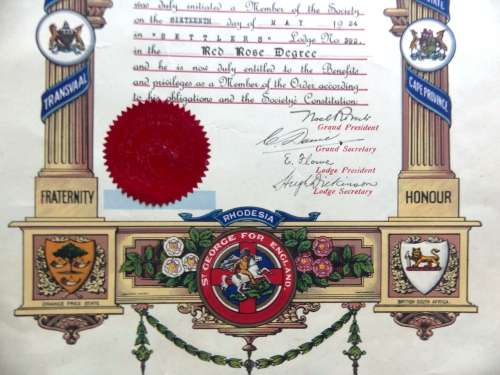 was duly initiated a Member of the Society
on the SIXTEENTH day of MAY 1934
in "SETTLERS" Lodge No 392.
in the Red Rose Degree
and he is now duly entitled to the Benefits
and privileges as a Member of the Order according
to his obligations and the Society's Constitution.
Grand President
Grand Secretary
E. Flowe
Lodge President
Hugh Dickinson
Lodge Secretary
STATE
TRANSVAAL
CAPE PROVINCE
FRATERNITY
HONOUR
RHODESIA
ST GEORGE FOR ENGLAND.
ORANGE FREE STATE.
BRITISH SOUTH AFRICA.